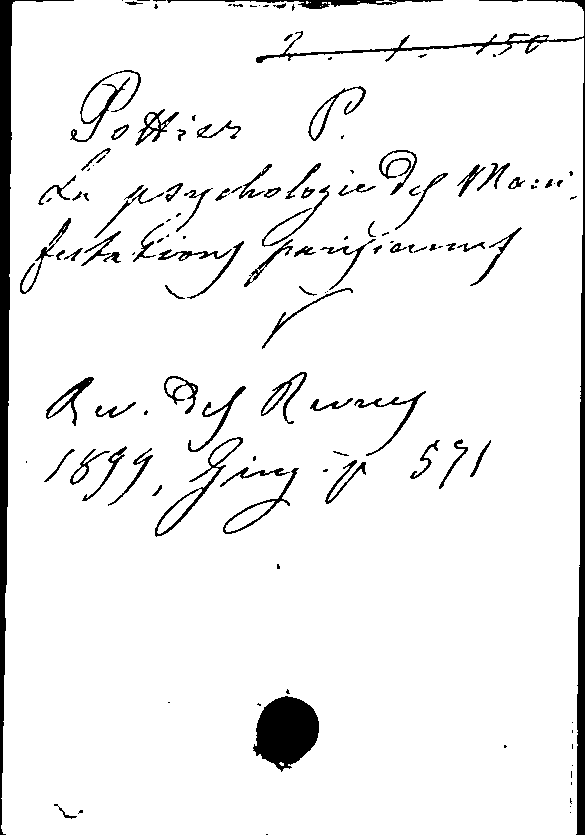 2. 1. 150
Pottier P.
La psychologie des Mani-
festations parisiennes
Rev. des Revues
1899, Giug. p 571